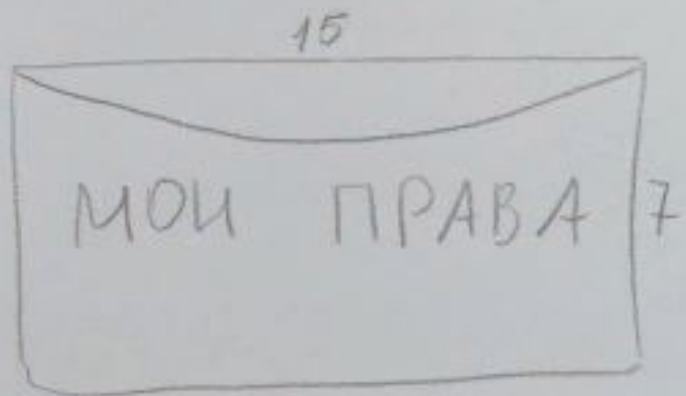 15
МОИ ПРАВА 7